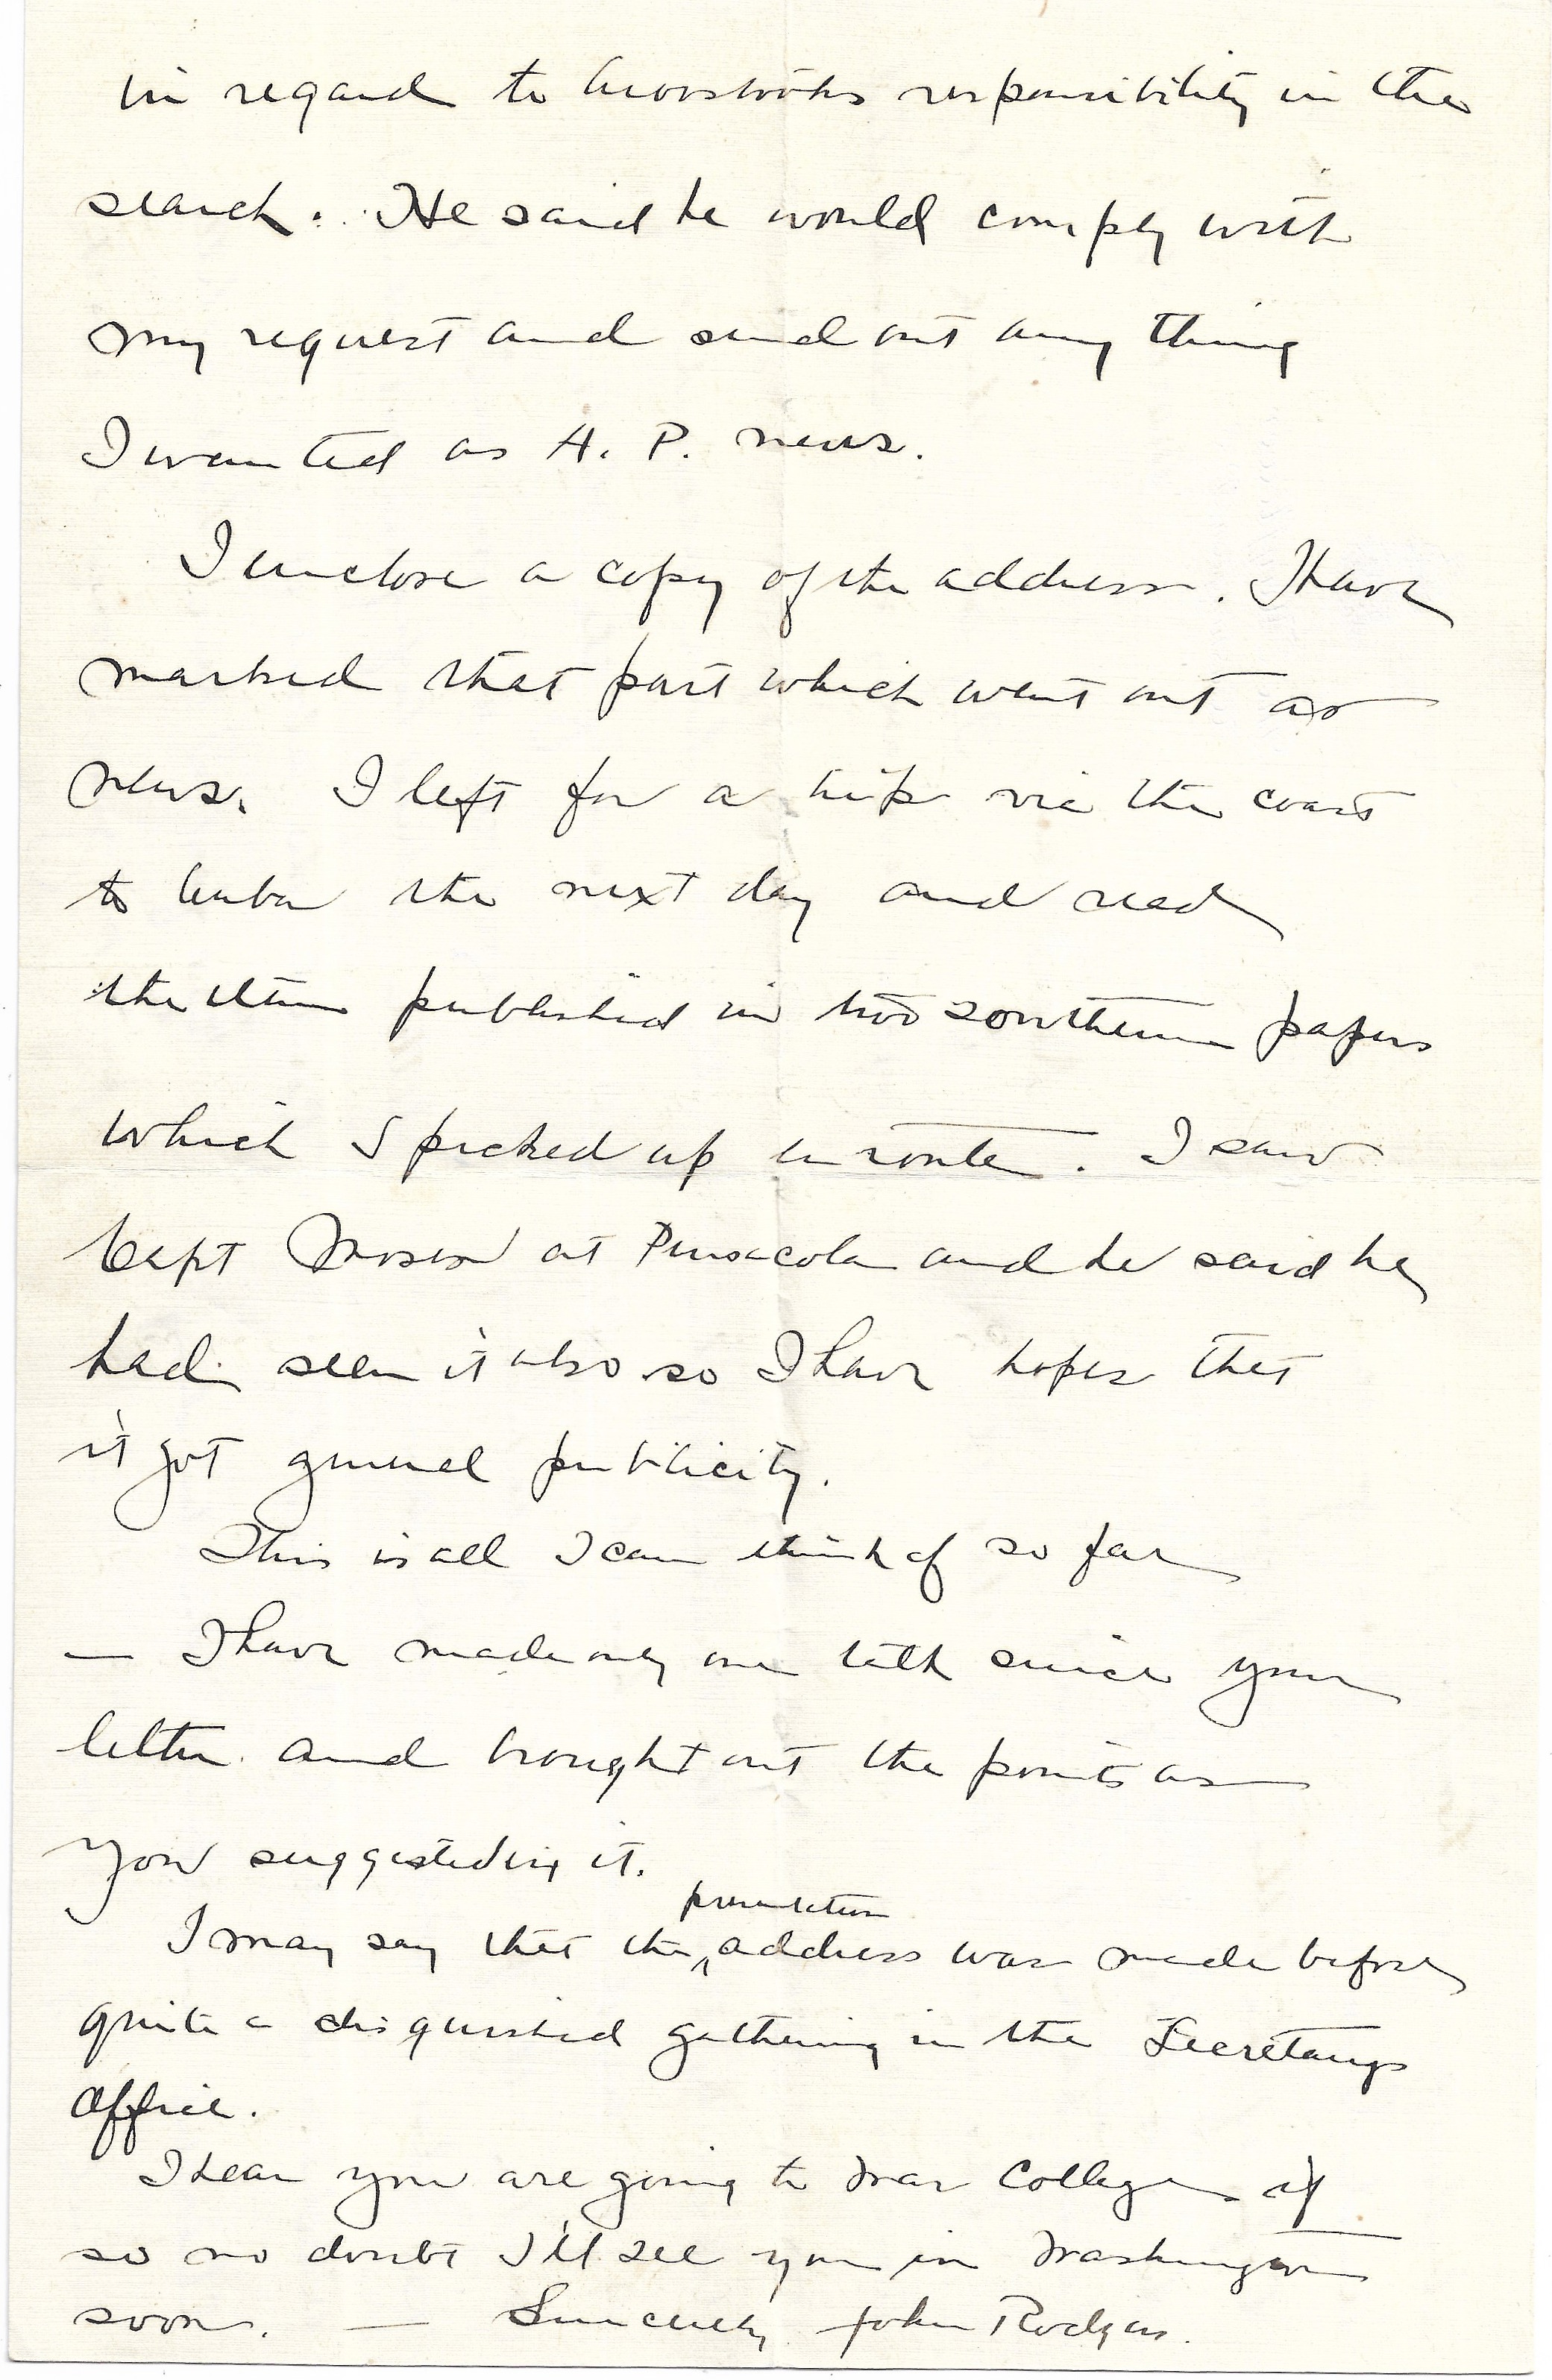 in regard to Aroostooks responsibility in the
search. He said he would comply with
my request and send out any thing
I wanted as A. P. news.
I enclose a copy of the address. I have
marked that part which went out as
news. I left for a trip via the coast
to Cuba the next day and read
the item published in two southern papers
which I picked up en route. I saw
Capt Moses at Pensacola and he said he
had seen it also so I have hopes that
it got general publicity.
This is all I can think of so far
— I have made only one talk since your
letter and brought out the points as
you suggested in it.
I may say that the ‸ presentation address was made before
quite a disguished gathering in the Secretarys
office.
I hear you are going to War College if
so no doubt I'll see you in Washington
soon. — Sincerely John Rodgers.